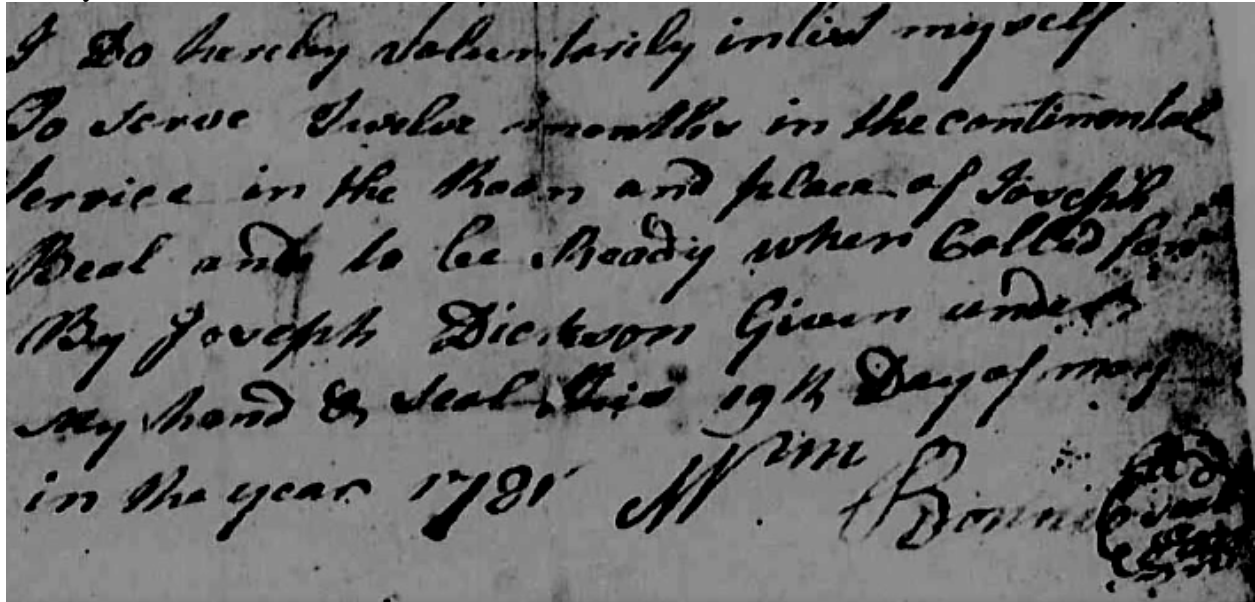 I Do hereby voluntarily inlist myself
To serve Twelve months in the continental
service in the Room and place of Joseph
Beal and to be Ready when Called for
By Joseph Dickson Given under
my hand & seal this 19th Day of may
in the year 1781 Wm